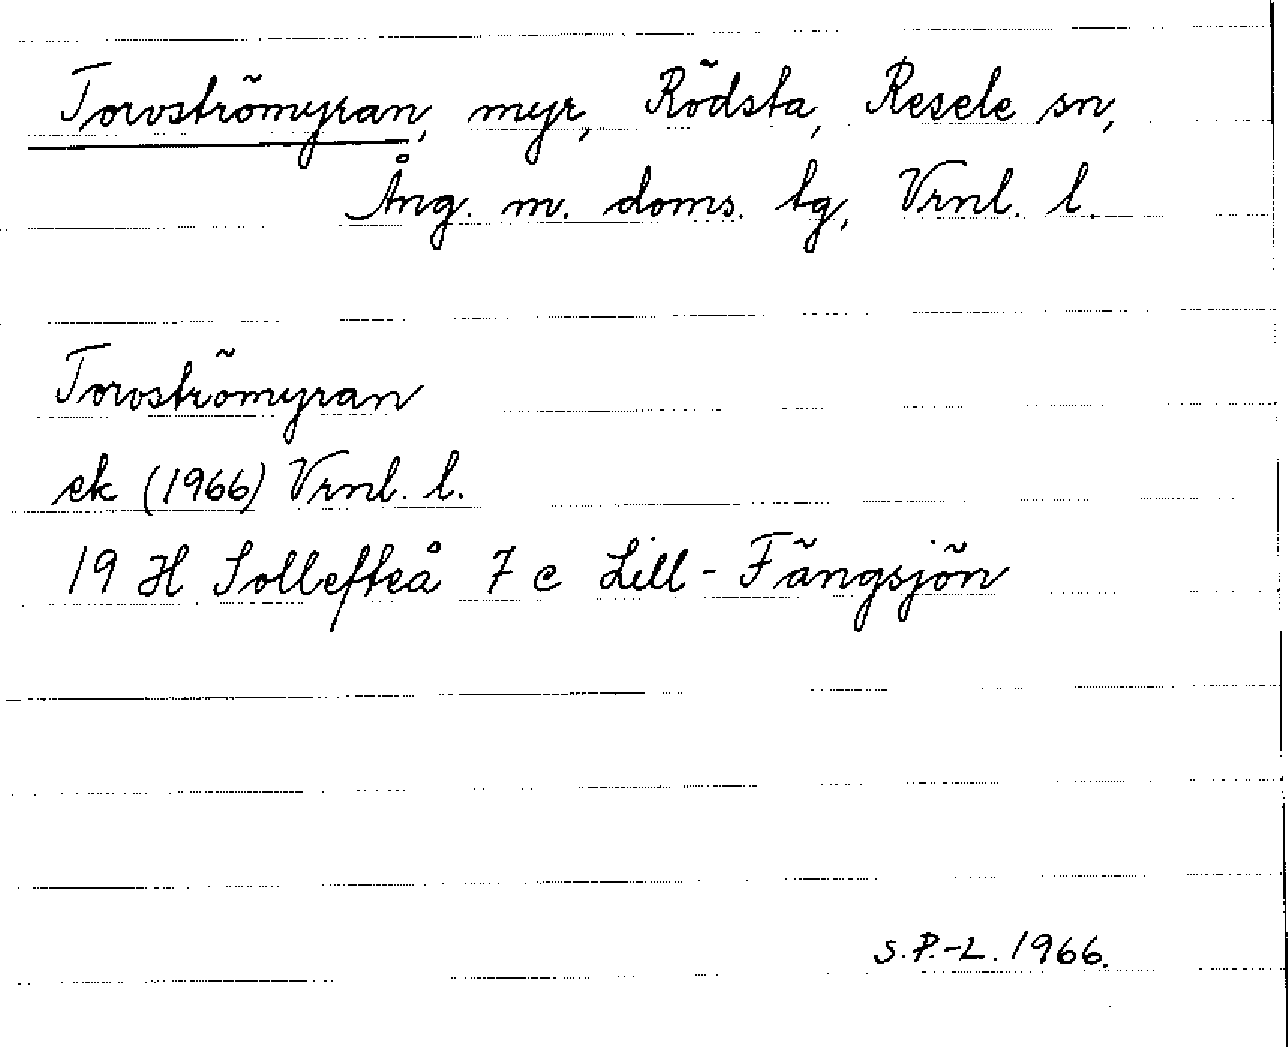 Torvströmyran, myr, Rödsta, Resele sn,
Ång. m. doms. tg, Vrnl. l.
Torvströmyran
ek (1966) Vrnl. l.
19 H Sollefteå 7 c Lill-Fängsjön
S.P.-L. 1966.